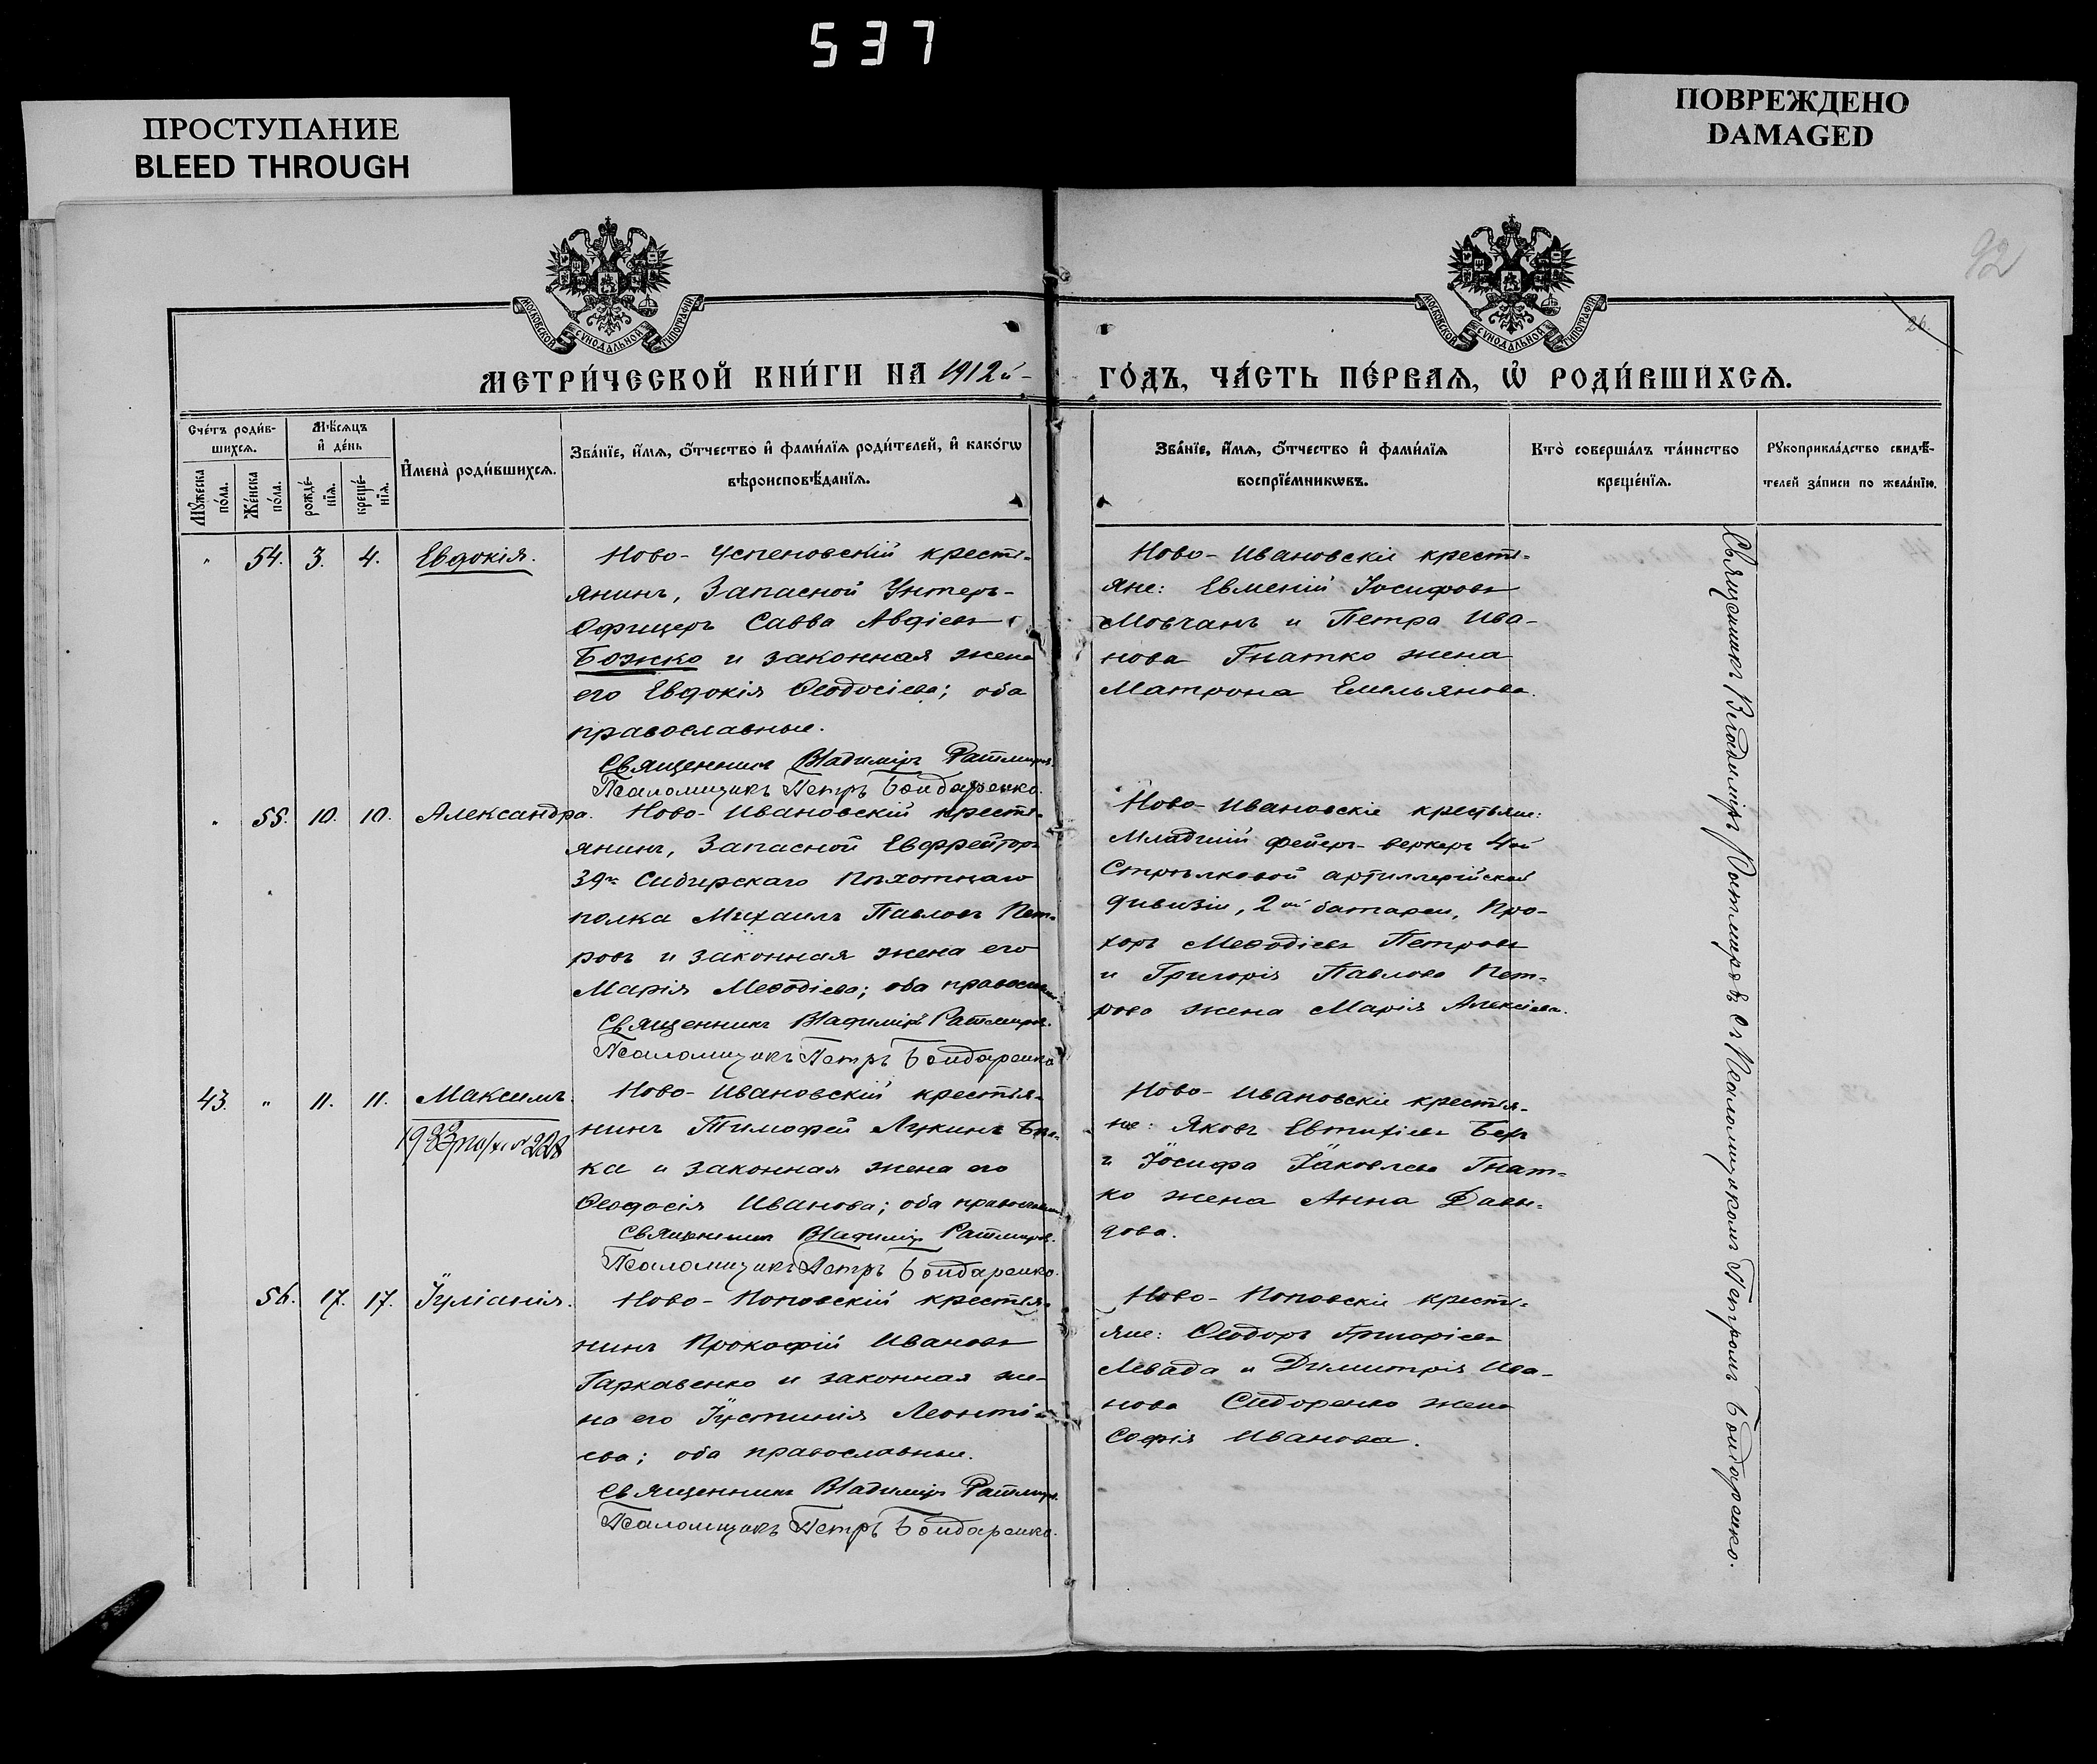 537
ПРОСТУПАНИЕ
BLEED THROUGH
ПОВРЕЖДЕНО
DAMAGED
92
26.
МОСКОВСКОЙ СѴНОДАЛЬНОЙ ТИПОГРАФІИ
МОСКОВСКОЙ СѴНОДАЛЬНОЙ ТИПОГРАФІИ
МЕТРИ́ЧЕСКОЙ КНИ́ГИ НА 1912й
ГО́ДЪ, ЧА́СТЬ ПЕ́РВАѦ, Ѡ҆ РОДИ́ВШИХСѦ.
Сче́тъ роди́в-
шихсѧ.
Мꙋ́жеска по́ла.
Же́нска по́ла.
Мѣ́сѧцъ
и҆ де́нь
рожде́-
нїѧ.
креще́-
нїѧ.
И҆мена̀ роди́вшихсѧ.
Зва́нїе, и҆́мѧ, ѻ҆́тчество и҆ фами́лїѧ роди́телей, и҆ како́гѡ
вѣроисповѣ́данїѧ.
Зва́нїе, и҆́мѧ, ѻ҆́тчество и҆ фами́лїѧ
воспрїе́мникѡвъ.
Кто̀ соверша́лъ та́инство
креще́нїѧ.
Рꙋкоприкла́дство свидѣ́-
телей за́писи по жела́нїю.
" 54. 3. 4. Евдокія.
Ново-Успеновскій кресть-
янинъ, Запасной Унтеръ-
Офицеръ Савва Авдіевъ
Божко и законная жена
его Евдокія Ѳеодосіева; оба
православные.
Священникъ Владиміръ Ратмировъ.
Псаломщикъ Петръ Бондаренко.
Ново-Ивановскіе кресть-
яне: Евменій Іосифовъ
Мовчанъ и Петра Ива-
нова Гнатко жена
Матрона Емельянова.
" 55. 10. 10. Александра.
Ново-Ивановскій кресть-
янинъ, Запасной Ефрейторъ
39го Сибирскаго Пѣхотнаго
полка Михаилъ Павловъ Пет-
ровъ и законная жена его
Марія Меѳодіева; оба православн.
Священникъ Владиміръ Ратмировъ.
Псаломщикъ Петръ Бондаренко
Ново-Ивановскіе крестьяне:
Младшій фейеръ-веркеръ 4ой
Стрѣлковой артиллерійской
дивизіи, 2ой батареи, Про-
хоръ Меѳодіевъ Петровъ
и Григорія Павлова Пет-
рова жена Марія Алексіева.
43. " 11. 11. Максимъ.
Ново-Ивановскій крестья-
нинъ Тимофей Лукинъ
ка и законная жена его
Ѳеодосія Иванова; оба православн.
Священникъ Владиміръ Ратмировъ.
Псаломщикъ Петръ Бондаренко.
Ново-Ивановскіе крестья-
не: Яковъ Евтихіевъ
и Іосифа Іаковлева Гнат-
ко жена Анна Давы-
дова.
56. 17. 17. Іуліанія.
Ново-Поповскій крестья-
нинъ Прокофій Ивановъ
Гаркавенко и законная же-
на его Іустинія Леонті-
ева; оба православные.
Священникъ Владиміръ Ратмировъ.
Псаломщикъ Петръ Бондаренко.
Ново-Поповскіе кресть-
яне: Ѳеодоръ Григоріевъ
Левада и Димитрія Ива-
нова Сидоренко жена
Софія Иванова.
Священникъ Владиміръ Ратмировъ съ Псаломщикомъ Петромъ Бондаренко.